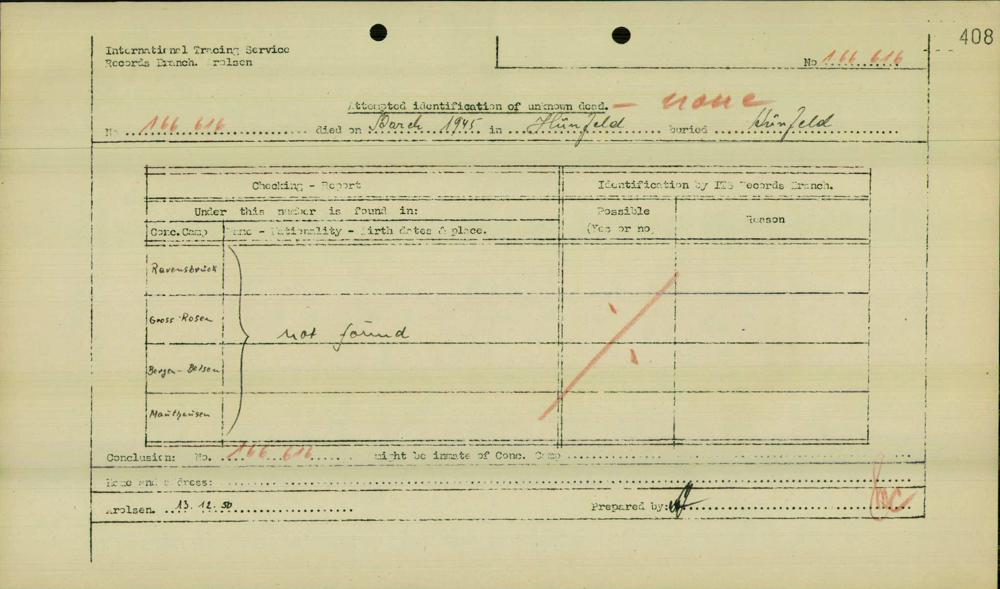 408
International Tracing Service
Records Branch. Arolsen
No 166 616
Attempted identification of unknown dead. — none
No 166 616 died on March 1945 in Hünfeld buried Hünfeld
Checking - Report Identification by ITS Records Branch.
Under this number is found in: Possible (Yes or no) Reason
Conc.Camp Name - Nationality - Birth dates & place.
Ravensbrück
Gross-Rosen
not found
Bergen-Belsen
Mauthausen
Conclusion: No. 166 616 might be inmate of Conc. Camp
Name and address:
Arolsen. 13. 12. 50 Prepared by: